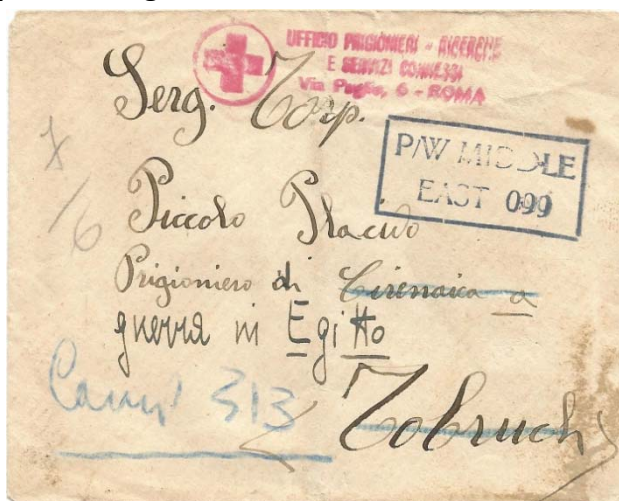 UFFICIO PRIGIONIERI - RICERCHE
E SERVIZI CONNESSI
Via Puglie, 6 - ROMA
Serg. Torp.
P/W MIDDLE
EAST 099
Piccolo Placido
Prigioniero di Cirenaica a
guerra in Egitto
Camp 313
Tobruch